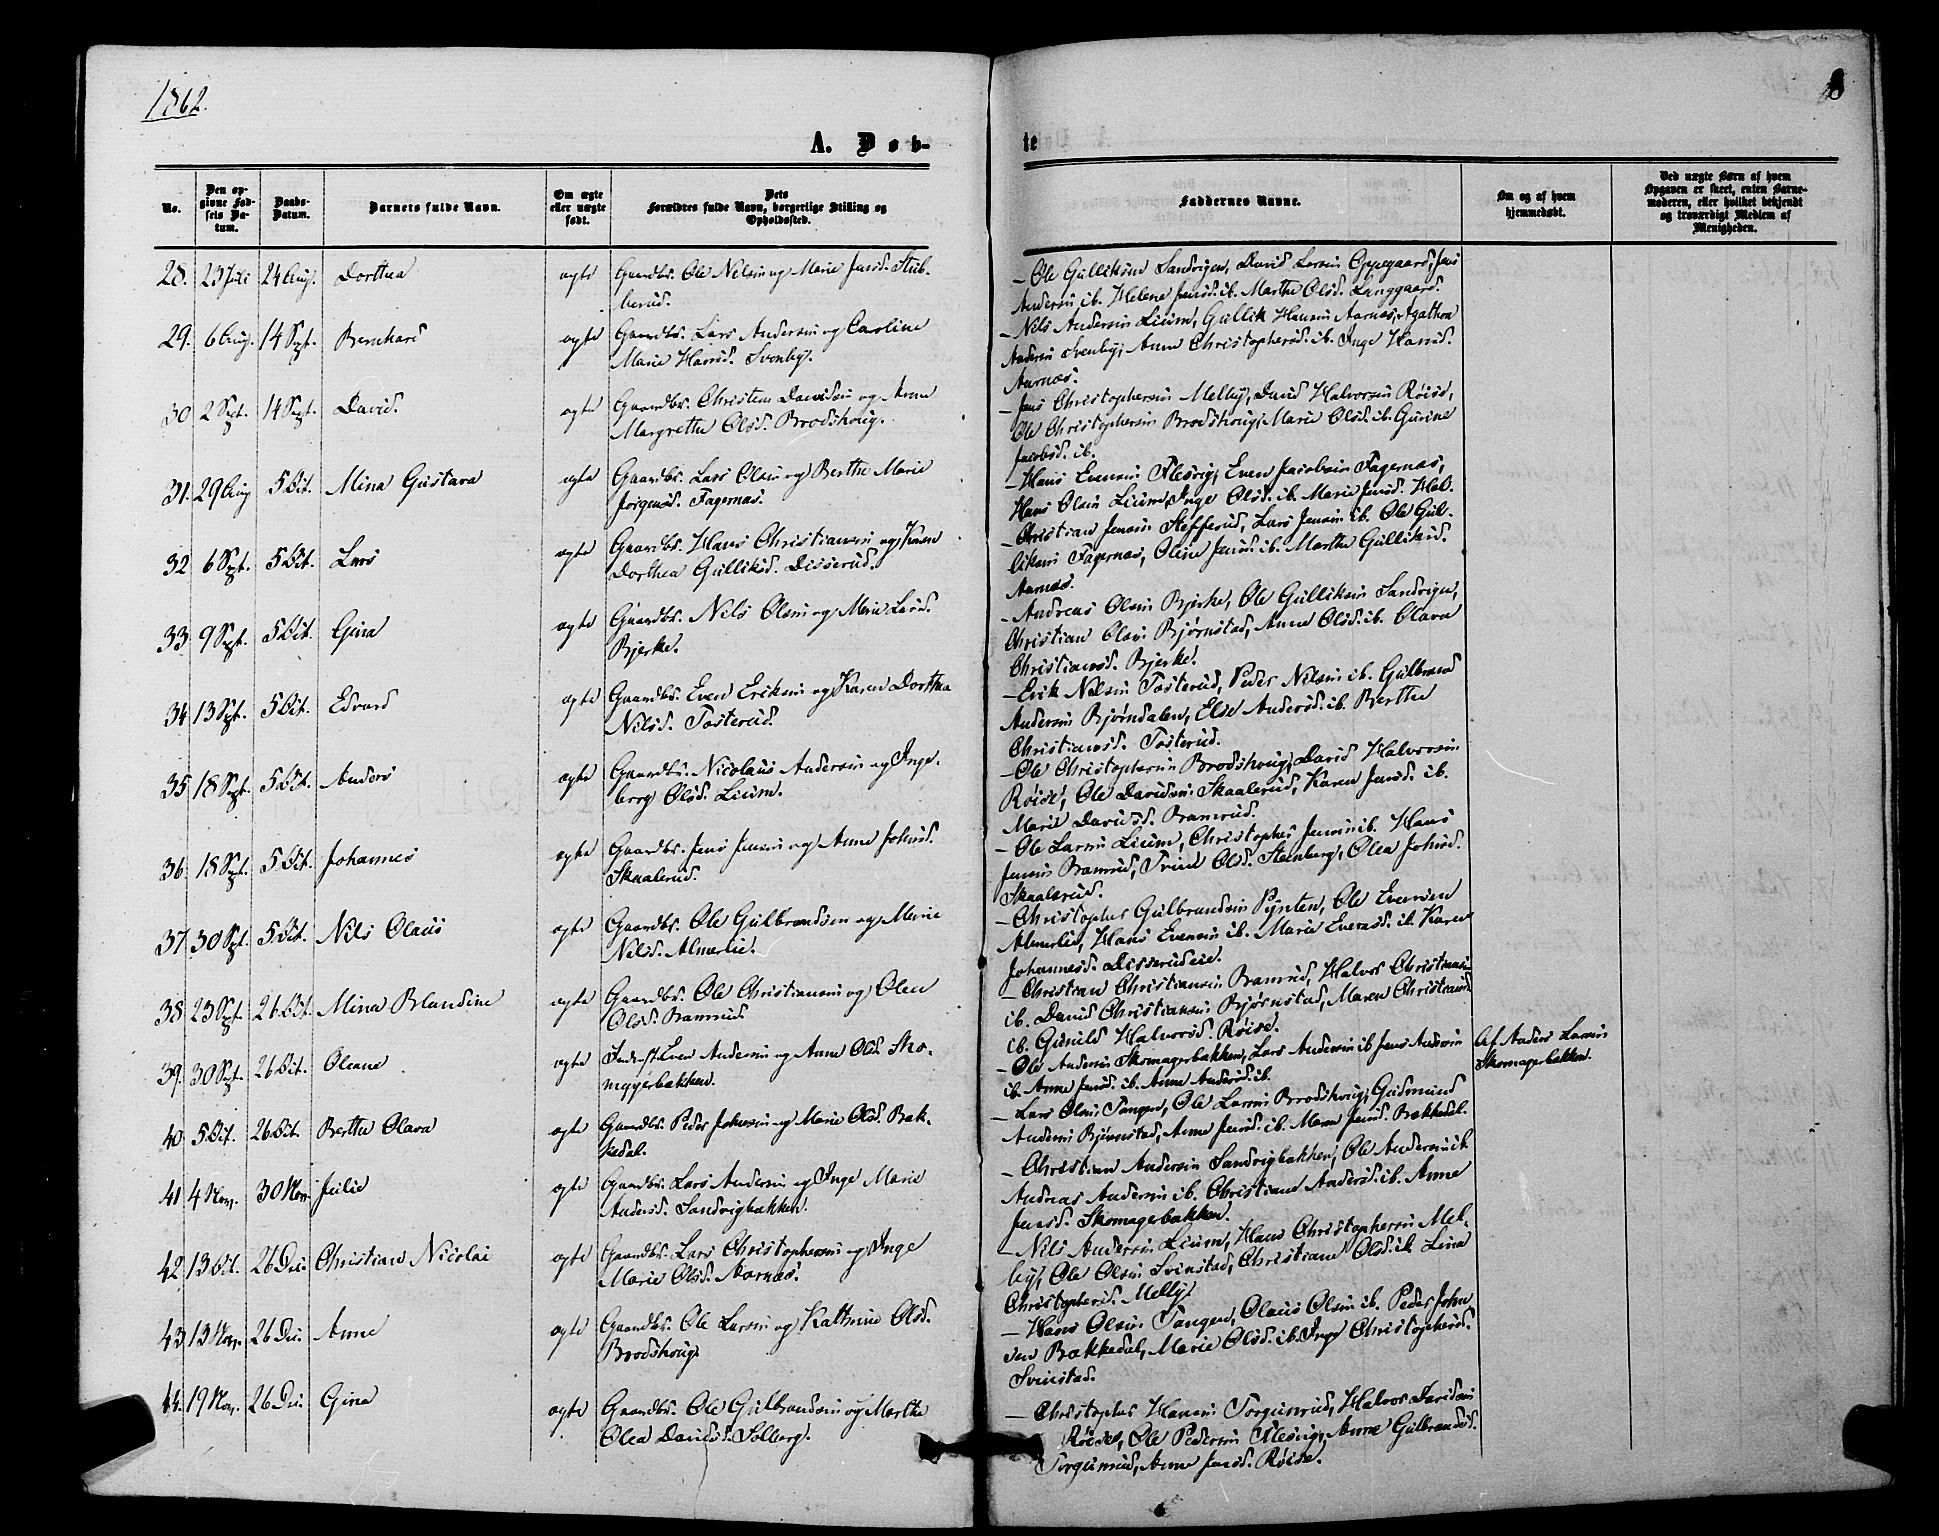 1862.
8
A. Døb-
te
No.
Den op-
givne Fød-
sels Da-
tum.
Daabs-
Datum.
Barnets fulde Navn.
Om ægte
eller uægte
født.
Dets
Forældres fulde Navn, borgerlige Stilling og
Opholdssted.
Faddernes Navne.
Om og af hvem
hjemmedøbt.
Ved uægte Børn af hvem
Opgaven er skeet, enten Barne-
moderen, eller hvilket bekjendt
og troværdigt Medlem af
Menigheden.
28. 23 Juli 24 Aug. Dorthea ægte Gaardbr. Ole Nilsen og Marie Jensd. Stub-
berud.
— Ole Gulliksen Sandvigen, David Larsen Oppegaard, Jens
Andersen ib. Helene Jensd. ib. Marthe Olsd. Langgaard.
29. 6 Aug. 14 Sept. Bernhard ægte Gaardbr. Lars Andersen og Caroline
Marie Hansd. Svenby.
— Nils Andersen Lium, Gullik Hansen Aarnæs, Agathon
Andersen Svenby, Anne Christophersd. ib. Inge Hansd.
Aarnæs.
30 2 Sept. 14 Sept. David. ægte Gaardbr. Christen Davidsen og Anne
Margrethe Olsd. Brodshoug.
— Jens Christophersen Melby, David Halvorsen Røise,
Ole Christophersen Brodshoug, Marie Olsd. ib. Gurine
Jacobsd. ib.
31. 29 Aug 5 Oct. Mina Gustava ægte Gaardbr. Lars Olsen og Berthe Marie
Jørgensd. Fagernæs.
— Hans Evensen Flesvig, Even Jacobsen Fagernæs,
Hans Olsen Lium, Inge Olsd. ib. Marie Jensd. Hval.
32 6 Sept. 5 Oct. Lars ægte Gaardbr. Hans Christiansen og Karen
Dorthea Gulliksd. Disserud.
— Christian Jensen Stefferud, Lars Jensen ib. Ole Gul-
liksen Fagernæs, Oline Jensd. ib. Marthe Gulliksd.
Aarnæs.
33 9 Sept. 5 Oct. Gina ægte Gaardbr. Nils Olsen og Marie Larsd.
Bjerke.
— Andreas Olsen Bjerke, Ole Gulliksen Sandvigen,
Christian Olsen Bjørnstad, Anne Olsd. ib. Olava
Christiansd. Bjerke.
34 13 Sept. 5 Oct. Edvard ægte Gaardbr. Even Eriksen og Karen Dorthea
Nilsd. Tosterud.
— Erik Nilsen Tosterud, Peder Nilsen ib. Gulbrand
Andersen Bjørndalen, Else Andersd. ib. Berthe
Christiansd. Tosterud.
35 18 Sept. 5 Oct. Anders ægte Gaardbr. Nicolaus Andersen og Inge-
borg Olsd. Lium.
— Ole Christophersen Brodshoug, David Halvorsen
Røise, Ole Davidsen Skaalerud, Karen Jensd. ib.
Marie Davidsd. Bramrud.
36 18 Sept. 5 Oct. Johannes ægte Gaardbr. Jens Jensen og Anne Johnsd.
Skaalerud.
— Ole Larsen Lium, Christopher Jensen ib. Hans
Jensen Bamrud, Trine Olsd. Steenberg, Olea Johnsd.
Skaalerud.
37 30 Sept. 5 Oct. Nils Olaus ægte Gaardbr. Ole Gulbrandsen og Marie
Nilsd. Almerlie.
— Christopher Gulbrandsen Pynten, Ole Evensen
Almerlie, Hans Evensen ib. Marie Evensd. ib. Karen
Johannesd. Disserudeie.
38 23 Sept. 26 Oct. Mina Blandine ægte Gaardbr. Ole Christiansen og Olea
Olsd. Bamrud
— Christian Christiansen Bramrud, Halvor Christiansen
ib. David Christiansen Bjørnstad, Maren Christiansd.
ib. Gunild Halvorsd. Røise.
39. 30 Sept. 26 Oct. Oleane ægte Inderst Even Andersen og Anne Olsd. Sko-
magerbakken.
— Ole Andersen Skomagerbakken, Lars Andersen ib Jens Andersen
ib. Anne Jensd. ib. Anne Andersd. ib.
Af Anders Larsen
Skomagerbakken.
40 5 Oct. 26 Oct. Berthe Olava ægte Gaardbr. Peder Johnsen og Marie Olsd. Bæk-
kedal.
— Lars Olsen Tangen, Ole Larsen Brodshoug, Gudmund
Andersen Bjørnstad, Anne Jensd. ib. Maren Jensd. Bækkedal.
41 4 Nov. 30 Nov. Julie ægte Gaardbr. Lars Andersen og Inge Marie
Andersd. Sandvigbakken.
— Christian Andersen Sandvigbakken, Ole Andersen ib.
Andreas Andersen ib. Christiane Andersd. ib. Anne
Jensd. Skomagerbakken.
42 13 Oct. 26 Dec. Christian Nicolai ægte Gaardbr. Lars Christophersen og Inge
Marie Olsd. Aarnæs.
— Nils Andersen Lium, Hans Christophersen Mel-
by, Ole Olsen Svinstad, Christiane Olsd. ib. Lina
Christophersd. Melby.
43 13 Nov. 26 Dec. Anne ægte Gaardbr. Ole Larsen og Kathrine Olsd.
Brodshoug.
— Hans Olsen Tangen, Olaus Olsen ib. Peder John-
sen Bækkedal, Marie Olsd. ib. Inge Christophersd.
Svinstad.
44. 19 Nov. 26 Dec. Gina ægte Gaardbr. Ole Gulbrandsen og Marthe
Olea Davidsd. Solberg.
— Christopher Hansen Torgunrud, Halvor Davidsen
Røise, Ole Pedersen Flesvig, Anne Gulbrandsd.
Torgunrud, Anne Jensd. Røise.